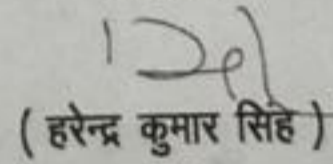 ( हरेन्द्र कुमार सिंह )